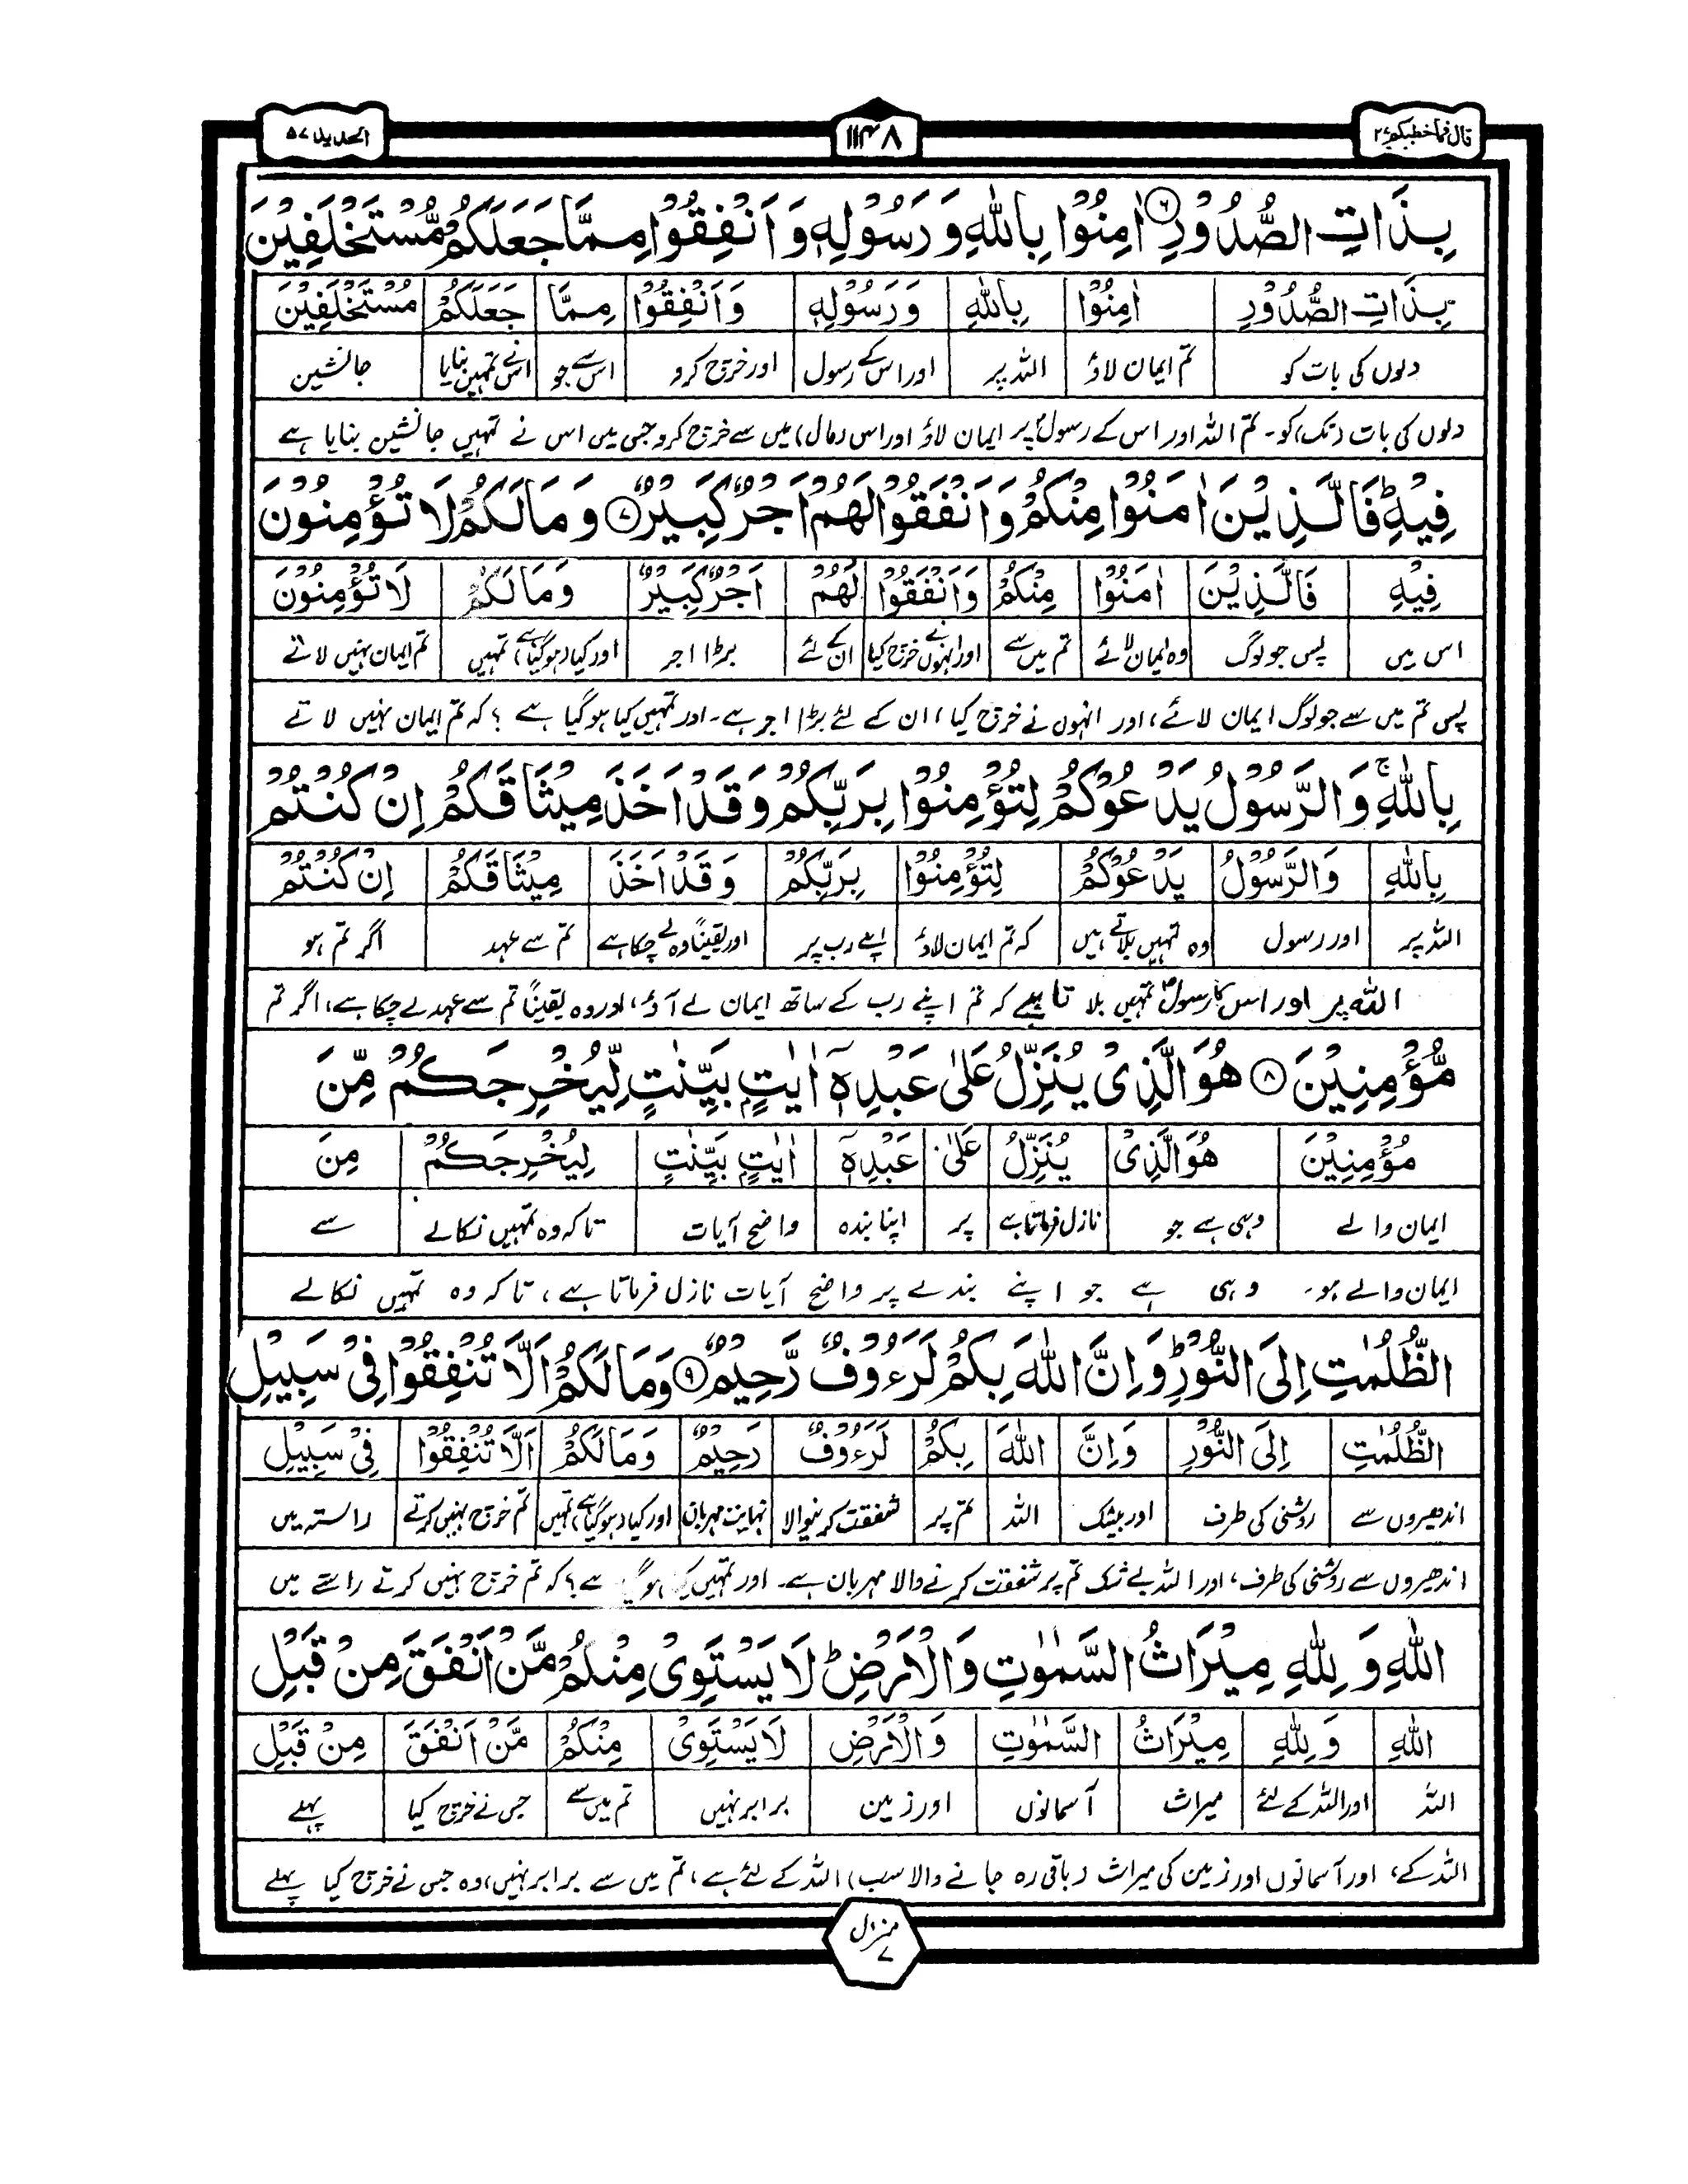 قال فما خطبكم ٢٧
١١٤٨
الحدید ٥٧
بِذَاتِ الصُّدُوْرِ ⑥ اٰمِنُوْا بِاللّٰهِ وَ رَسُوْلِهٖ وَ اَنْفِقُوْا مِمَّا جَعَلَكُمْ مُّسْتَخْلَفِیْنَ
بِذَاتِ الصُّدُوْرِ اٰمِنُوْا بِاللّٰهِ وَ رَسُوْلِهٖ وَ اَنْفِقُوْا مِمَّا جَعَلَكُمْ مُسْتَخْلَفِیْنَ
دلوں کی بات کو تم ایمان لاؤ اللہ پر اور اس کے رسول اور خرچ کرو اس سے جو اس نے تمہیں بنایا جانشین
دلوں کی بات (تک) کو۔ تم اللہ اور اس کے رسولؐ پر ایمان لاؤ اور اس (مال) میں سے خرچ کرو جس میں اس نے تمہیں جانشین بنایا ہے
فِیْهِ ؕ فَالَّذِیْنَ اٰمَنُوْا مِنْكُمْ وَ اَنْفَقُوْا لَهُمْ اَجْرٌ كَبِیْرٌ ⑦ وَ مَا لَكُمْ لَا تُؤْمِنُوْنَ
فِیْهِ فَالَّذِیْنَ اٰمَنُوْا مِنْكُمْ وَ اَنْفَقُوْا لَهُمْ اَجْرٌ كَبِیْرٌ وَ مَا لَكُمْ لَا تُؤْمِنُوْنَ
اس میں پس جو لوگ وہ ایمان لائے تم میں سے اور انہوں نے خرچ کیا ان کے لئے بڑا اجر اور کیا (ہو گیا ہے) تمہیں تم ایمان نہیں لاتے
پس تم میں سے جو لوگ ایمان لائے، اور انہوں نے خرچ کیا، ان کے لئے بڑا اجر ہے۔ اور تمہیں کیا ہو گیا ہے؟ کہ تم ایمان نہیں لاتے
بِاللّٰهِ ۚ وَ الرَّسُوْلُ یَدْعُوْكُمْ لِتُؤْمِنُوْا بِرَبِّكُمْ وَ قَدْ اَخَذَ مِیْثَاقَكُمْ اِنْ كُنْتُمْ
بِاللّٰهِ وَ الرَّسُوْلُ یَدْعُوْكُمْ لِتُؤْمِنُوْا بِرَبِّكُمْ وَ قَدْ اَخَذَ مِیْثَاقَكُمْ اِنْ كُنْتُمْ
اللہ پر اور رسول وہ تمہیں بلاتے ہیں کہ تم ایمان لاؤ اپنے رب پر اور یقیناً وہ لے چکا ہے تم سے عہد اگر تم ہو
اللہ پر اور اس کا رسولؐ تمہیں بلاتا ہے کہ تم اپنے رب کے ساتھ ایمان لے آؤ، اور وہ یقیناً تم سے عہد لے چکا ہے، اگر تم
مُّؤْمِنِیْنَ ⑧ هُوَ الَّذِیْ یُنَزِّلُ عَلٰی عَبْدِهٖۤ اٰیٰتٍۭ بَیِّنٰتٍ لِّیُخْرِجَكُمْ مِّنَ
مُؤْمِنِیْنَ هُوَ الَّذِیْ یُنَزِّلُ عَلٰی عَبْدِهٖۤ اٰیٰتٍۭ بَیِّنٰتٍ لِیُخْرِجَكُمْ مِنَ
ایمان والے وہی ہے جو نازل فرماتا ہے پر اپنا بندہ واضح آیات تاکہ وہ تمہیں نکالے سے
ایمان والے ہو۔ وہی ہے جو اپنے بندے پر واضح آیات نازل فرماتا ہے، تاکہ وہ تمہیں نکالے
الظُّلُمٰتِ اِلَی النُّوْرِ ؕ وَ اِنَّ اللّٰهَ بِكُمْ لَرَءُوْفٌ رَّحِیْمٌ ⑨ وَ مَا لَكُمْ اَلَّا تُنْفِقُوْا فِیْ سَبِیْلِ
الظُّلُمٰتِ اِلَی النُّوْرِ وَ اِنَّ اللّٰهَ بِكُمْ لَرَءُوْفٌ رَحِیْمٌ وَ مَا لَكُمْ اَلَّا تُنْفِقُوْا فِیْ سَبِیْلِ
اندھیروں سے روشنی کی طرف اور بیشک اللہ تم پر شفقت کرنیوالا نہایت مہربان اور کیا (ہو گیا ہے) تمہیں تم خرچ نہیں کرتے راستہ میں
اندھیروں سے روشنی کی طرف، اور اللہ بے شک تم پر شفقت کرنے والا مہربان ہے۔ اور تمہیں کیا ہو گیا ہے؟ کہ تم خرچ نہیں کرتے راستے میں
اللّٰهِ وَ لِلّٰهِ مِیْرَاثُ السَّمٰوٰتِ وَ الْاَرْضِ ؕ لَا یَسْتَوِیْ مِنْكُمْ مَّنْ اَنْفَقَ مِنْ قَبْلِ
اللّٰهِ وَ لِلّٰهِ مِیْرَاثُ السَّمٰوٰتِ وَ الْاَرْضِ لَا یَسْتَوِیْ مِنْكُمْ مَّنْ اَنْفَقَ مِنْ قَبْلِ
اللہ اور اللہ کے لئے میراث آسمانوں اور زمین برابر نہیں تم میں سے جس نے خرچ کیا پہلے
اللہ کے، اور آسمانوں اور زمین کی میراث (باقی رہ جانے والا سب) اللہ کے لئے ہے، تم میں سے برابر نہیں، وہ جس نے خرچ کیا پہلے
منزل ٧